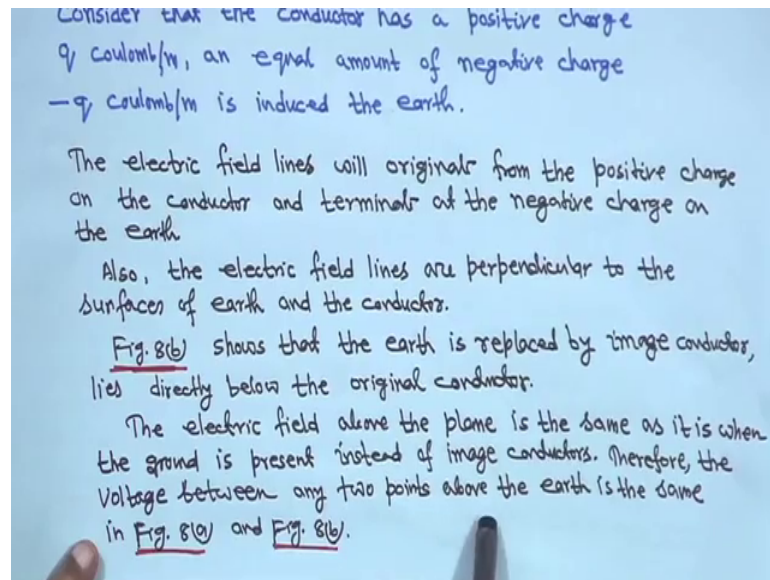 Consider that the conductor has a positive charge
q coulomb/m, an equal amount of negative charge
-q coulomb/m is induced the earth.
The electric field lines will originate from the positive charge
on the conductor and terminate at the negative charge on
the earth
Also, the electric field lines are perpendicular to the
surfaces of earth and the conductor.
Fig. 8(b) shows that the earth is replaced by image conductor,
lies directly below the original conductor.
The electric field above the plane is the same as it is when
the ground is present instead of image conductors. Therefore, the
voltage between any two points above the earth is the same
in Fig. 8(a) and Fig. 8(b).